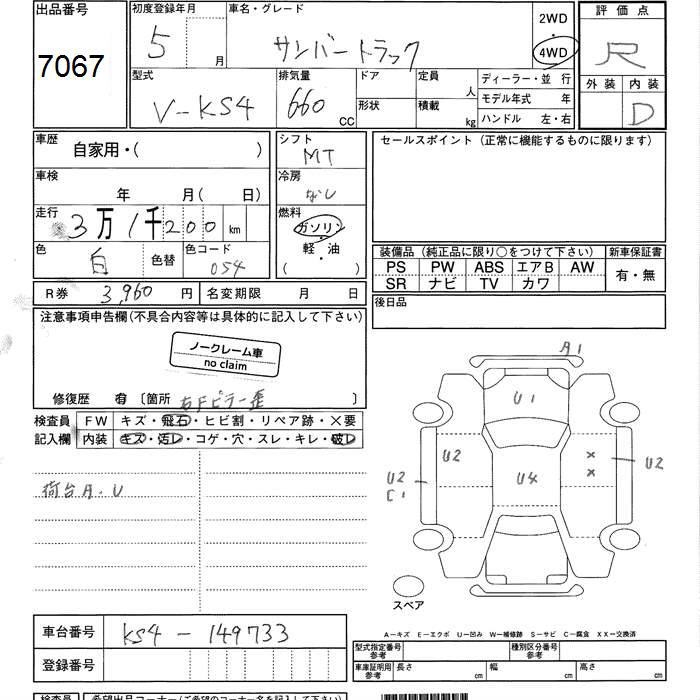 出品番号
7067
初度登録年月
5 月
車名・グレード
サンバートラック
2WD
4WD
評価点
R
外装 内装
D
型式
V-KS4
排気量
660 CC
ドア
形状
定員
人
積載
kg
ディーラー・並 行
モデル年式 年
ハンドル 左・右
車歴
自家用・( )
シフト
MT
セールスポイント (正常に機能するものに限ります)
車検
年 月( 日)
冷房
なし
走行
3万1千200 km
燃料
ガソリン
・
軽・油
( )
色
白
色替
色コード
054
装備品 (純正品に限り○をつけて下さい)
新車保証書
PS PW ABS エアB AW
SR ナビ TV カワ
有・無
R券 3,960 円
名変期限 月 日
後日品
注意事項申告欄(不具合内容等は具体的に記入して下さい)
ノークレーム車
no claim
修復歴 有 〔箇所 右Fピラー歪 〕
検査員
記入欄
FW キズ・飛石・ヒビ割・リペア跡・×要
内装 キズ・汚レ・コゲ・穴・スレ・キレ・破レ
荷台A・U
A1
U1
U2
U2
C1
U4
×
×
U2
スペア
A-キズ E-エクボ U-凹み W-補修跡 S-サビ C-腐食 XX-交換済
車台番号
KS4-149733
登録番号
型式指定番号
参考
種別区分番号
参考
車庫証明用
参考
長さ cm
幅 cm
高さ cm
検査員
希望出品コーナー(ご希望のコーナー名を記入下さい)